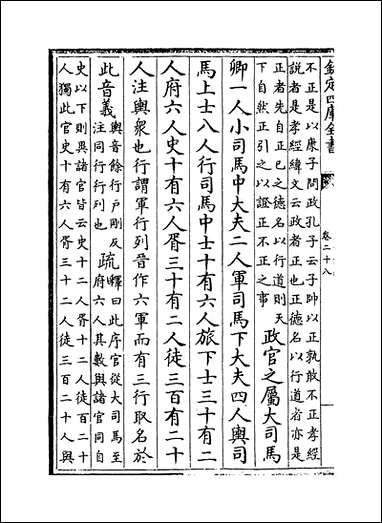 欽定四庫全書
卷二十八
不正是以康子問政孔子云子帥以正孰敢不正孝經
說者是孝經緯文云政者正也正德名以行道者亦是
正者先自正己之德名以行道則天
下自然正引之以證正不正之事
政官之屬大司馬
卿一人小司馬中大夫二人軍司馬下大夫四人輿司
馬上士八人行司馬中士十有六人旅下士三十有二
人府六人史十有六人胥三十有二人徒三百有二十
人注輿衆也行謂軍行列音作六軍而有三行取名於
此音義
輿音餘行戶剛反
注同行行列也
疏
釋曰此序官從大司馬至
府六人其數與諸官同自
史以下則異諸官皆云史十二人胥十二人徒百二十
人獨此官史十有六人胥三十二人徒三百二十人與